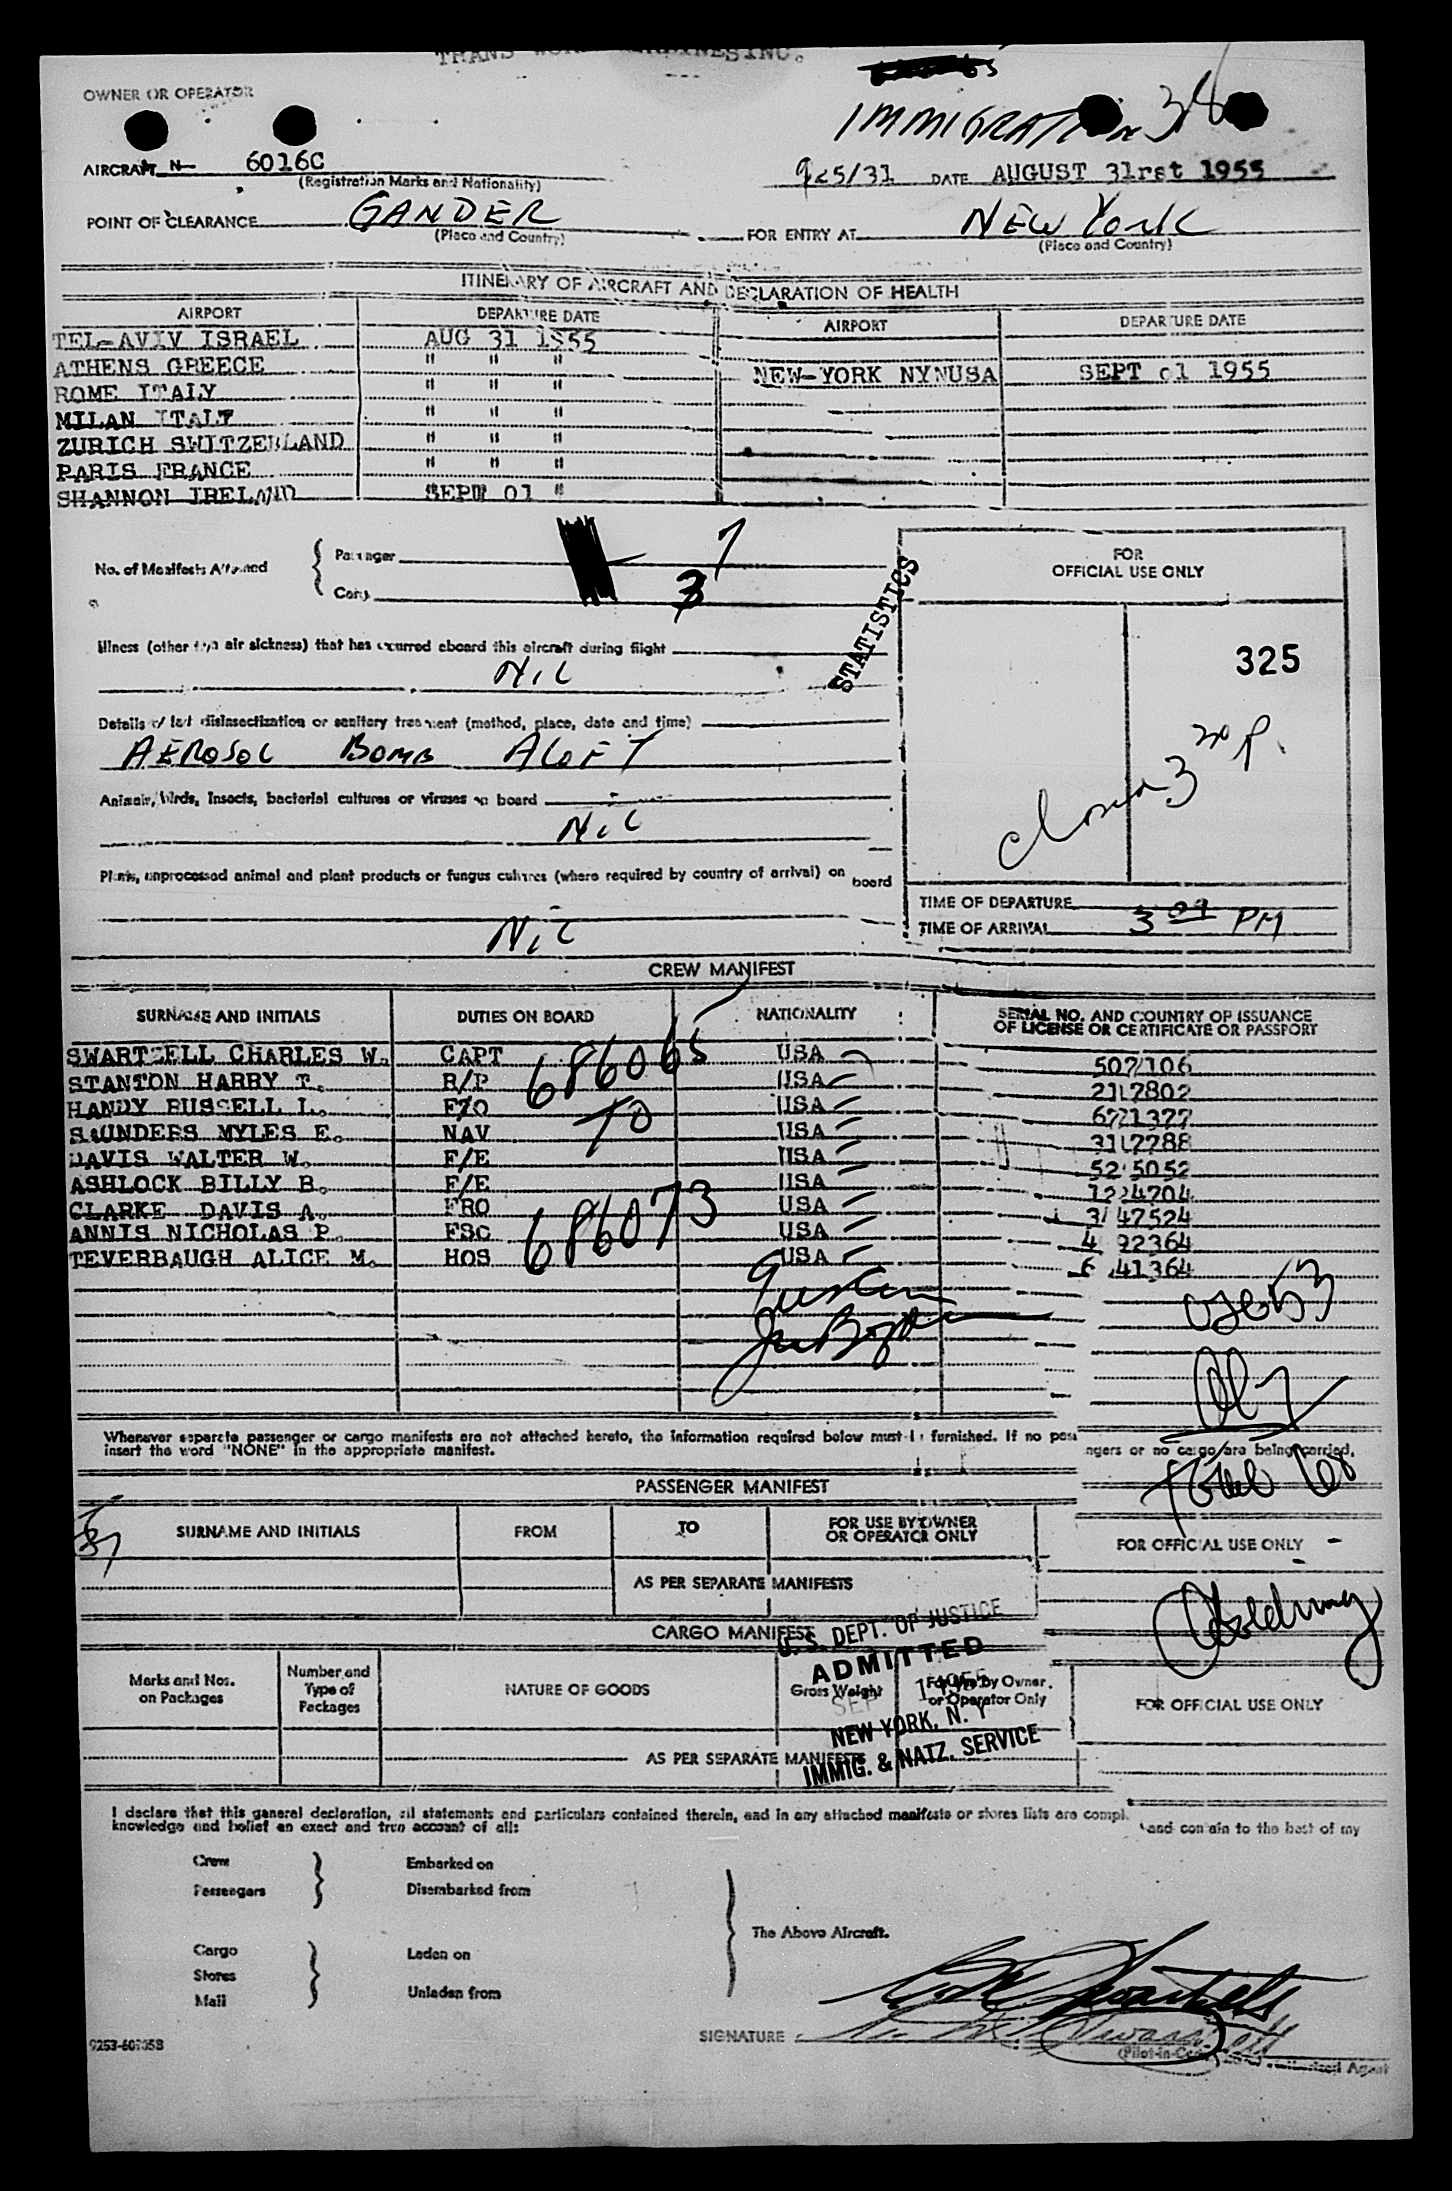 OWNER OR OPERATOR
IMMIGRATION
AIRCRAFT N 6016C
(Registration Marks and Nationality)
925/31 DATE AUGUST 31rst 1955
POINT OF CLEARANCE GANDER FOR ENTRY AT NEW YORK
(Place and Country) (Place and Country)
ITINERARY OF AIRCRAFT AND DECLARATION OF HEALTH
AIRPORT DEPARTURE DATE AIRPORT DEPARTURE DATE
TEL-AVIV ISRAEL AUG 31 1955
ATHENS GREECE " " " NEW-YORK NYNUSA SEPT 01 1955
ROME ITALY " " "
MILAN ITALY " " "
ZURICH SWITZERLAND " " "
PARIS FRANCE " " "
SHANNON IRELAND SEPT 01 "
No. of Manifests Attached
Passenger 7
Cargo 3
STATISTICS
FOR
OFFICIAL USE ONLY
325
Illness (other than air sickness) that has occurred aboard this aircraft during flight
NIL
Details of last disinsectization or sanitary treatment (method, place, date and time)
AEROSOL BOMB ALOFT
Animals, birds, insects, bacterial cultures or viruses on board
NIL
Plants, unprocessed animal and plant products or fungus cultures (where required by country of arrival) on board
NIL
TIME OF DEPARTURE
TIME OF ARRIVAL 3 09 PM
CREW MANIFEST
SURNAME AND INITIALS DUTIES ON BOARD NATIONALITY SERIAL NO. AND COUNTRY OF ISSUANCE
OF LICENSE OR CERTIFICATE OR PASSPORT
SWARTZELL CHARLES W. CAPT USA
STANTON HARRY T. R/P USA
HANDY RUSSELL L. F/O USA
SAUNDERS MYLES E. NAV USA
DAVIS WALTER W. F/E USA
ASHLOCK BILLY B. F/E USA
CLARKE DAVIS A. FRO USA
ANNIS NICHOLAS P. FSC USA
TEVERBAUGH ALICE M. HOS USA
686065
TO
686073
Whenever separate passenger or cargo manifests are not attached hereto, the information required below must be furnished. If no passengers or no cargo are being carried,
insert the word "NONE" in the appropriate manifest.
PASSENGER MANIFEST
SURNAME AND INITIALS FROM TO FOR USE BY OWNER
OR OPERATOR ONLY FOR OFFICIAL USE ONLY
AS PER SEPARATE MANIFESTS
CARGO MANIFEST
Marks and Nos.
on Packages
Number and
Type of
Packages
NATURE OF GOODS
Gross Weight
For Use by Owner
or Operator Only
FOR OFFICIAL USE ONLY
AS PER SEPARATE MANIFESTS
U. S. DEPT. OF JUSTICE
ADMITTED
SEP 1 1955
NEW YORK, N. Y
IMMIG. & NATZ. SERVICE
I declare that this general declaration, all statements and particulars contained therein, and in any attached manifests or stores lists are compl. and contain to the best of my
knowledge and belief an exact and true account of all:
Crew Embarked on
Passengers Disembarked from
The Above Aircraft.
Cargo Laden on
Stores
Mail Unladen from
SIGNATURE